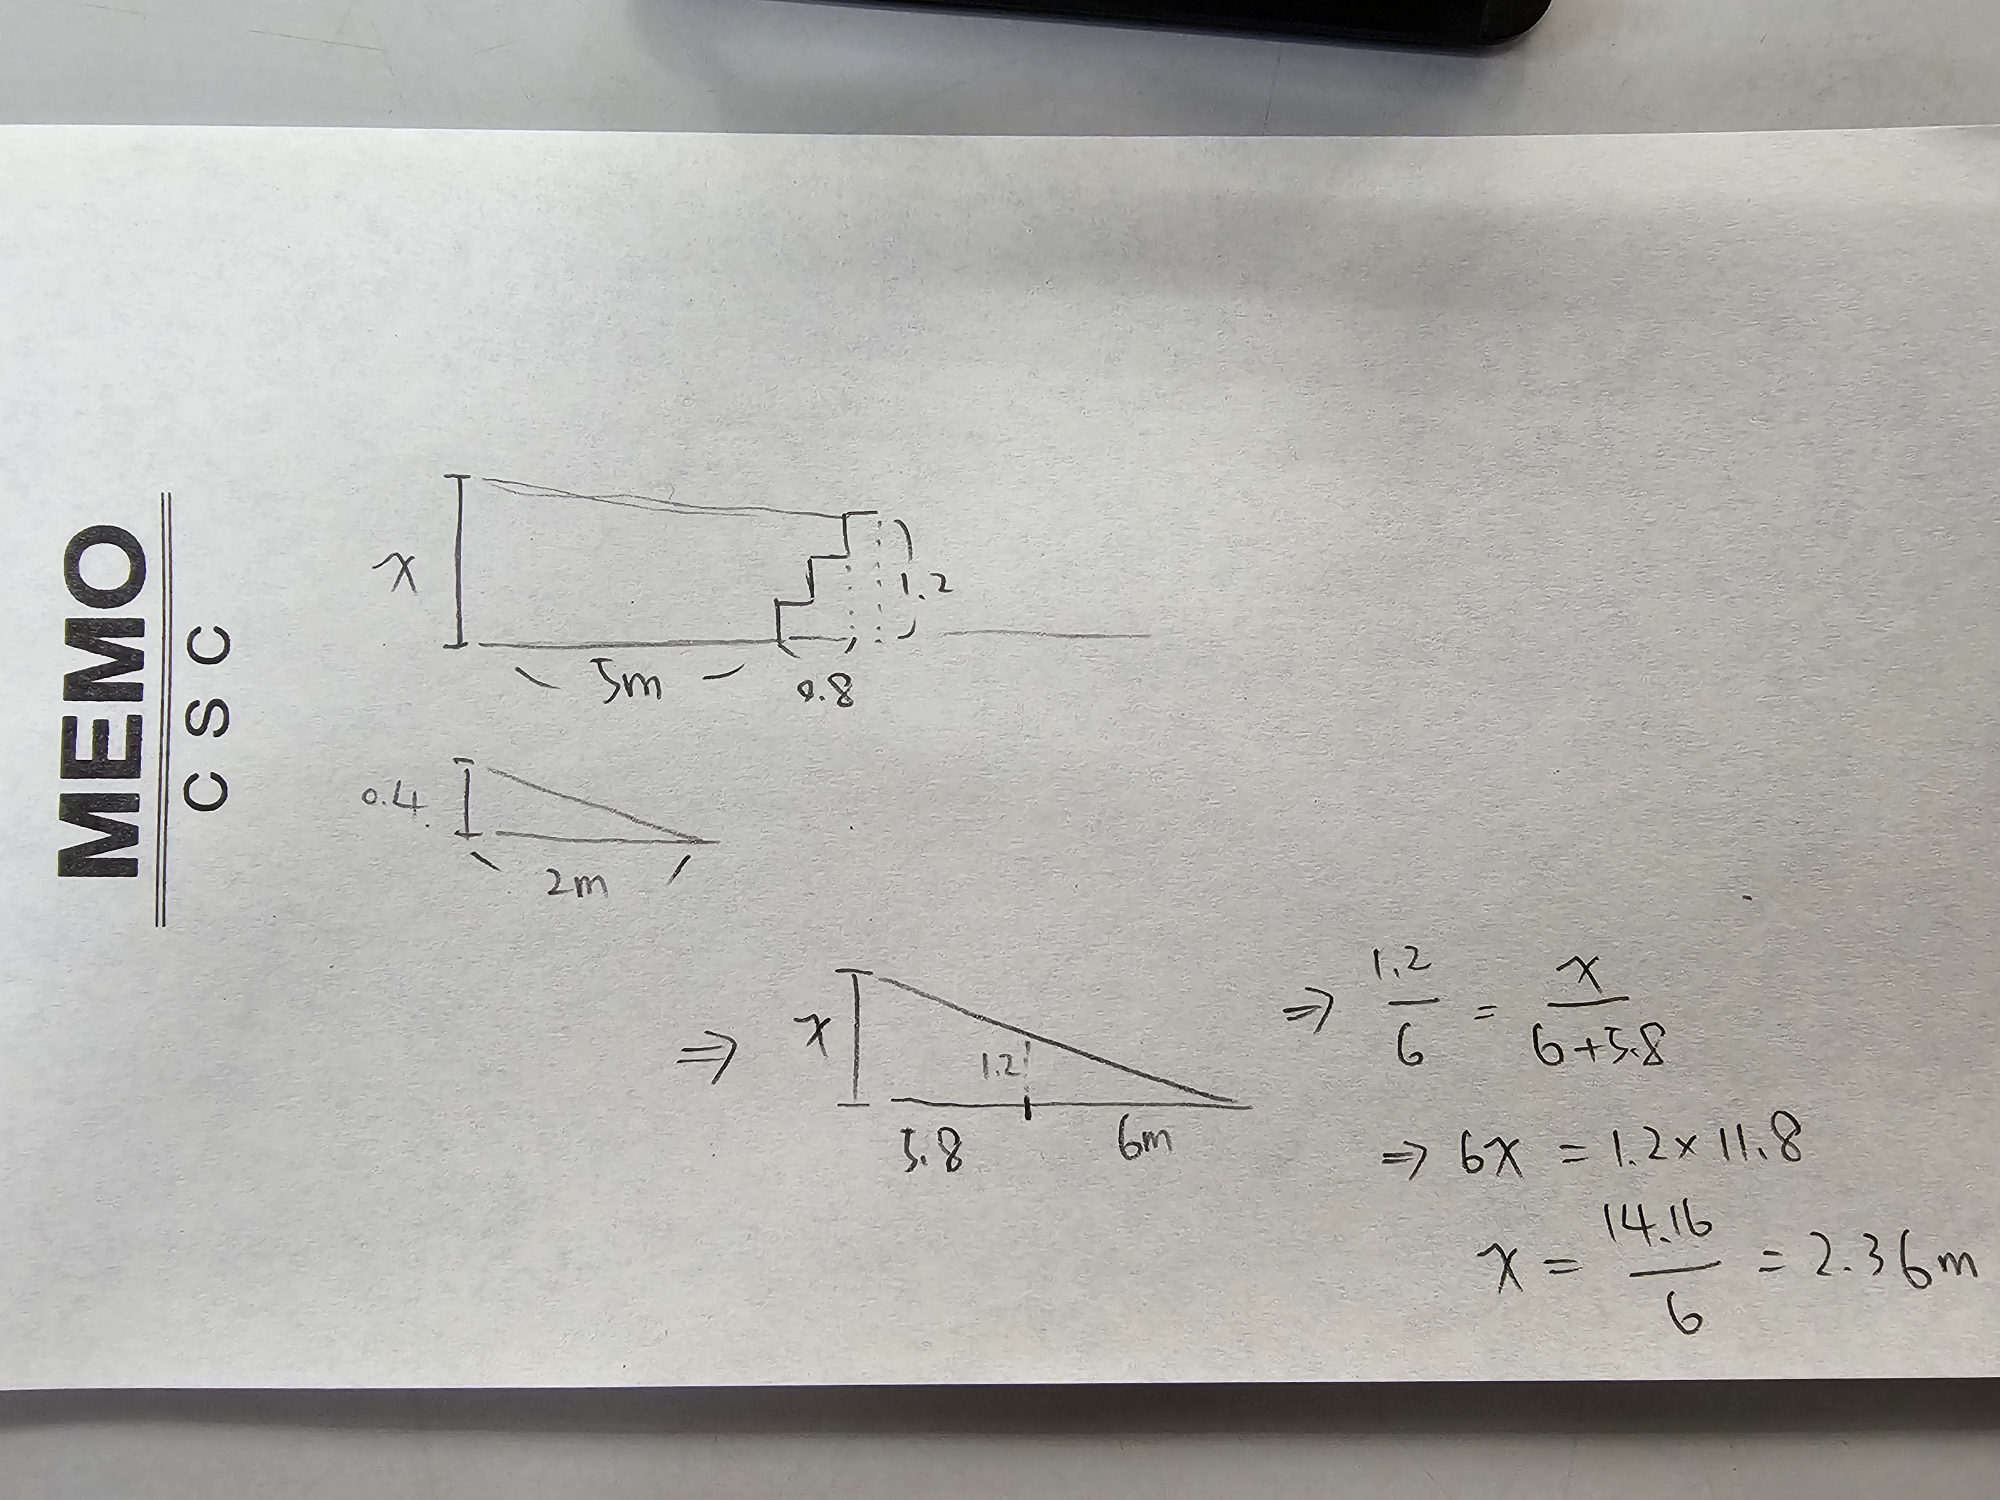 MEMO
CSC
x
1.2
5m
0.8
0.4
2m
⇒
x
1.2
5.8
6m
⇒ 1.2/6 = x/(6+5.8)
⇒ 6x = 1.2 × 11.8
x = 14.16/6 = 2.36m